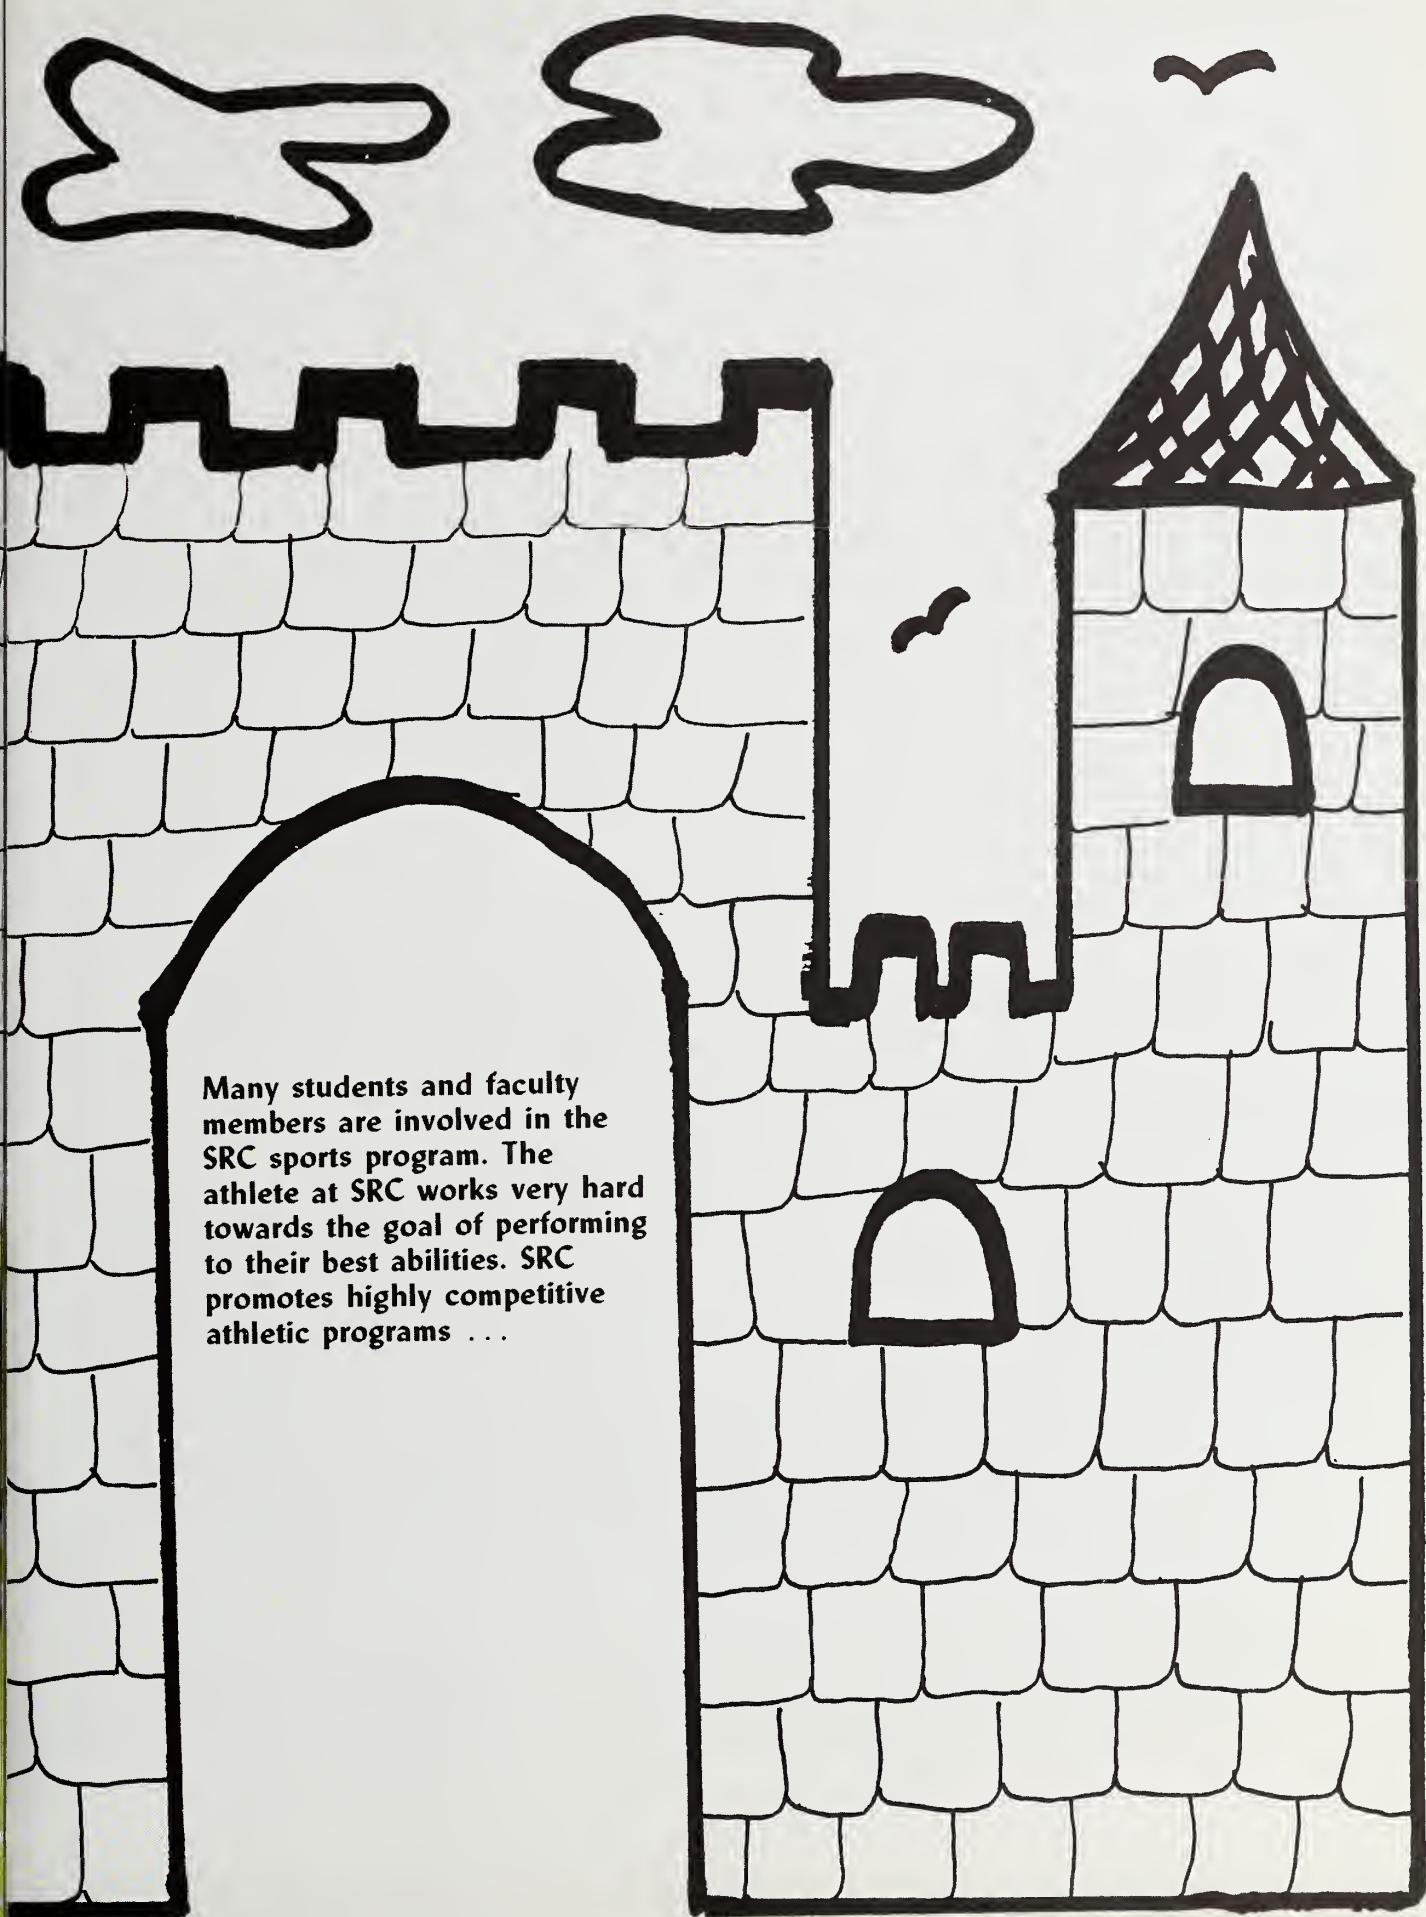 Many students and faculty
members are involved in the
SRC sports program. The
athlete at SRC works very hard
towards the goal of performing
to their best abilities. SRC
promotes highly competitive
athletic programs . . .